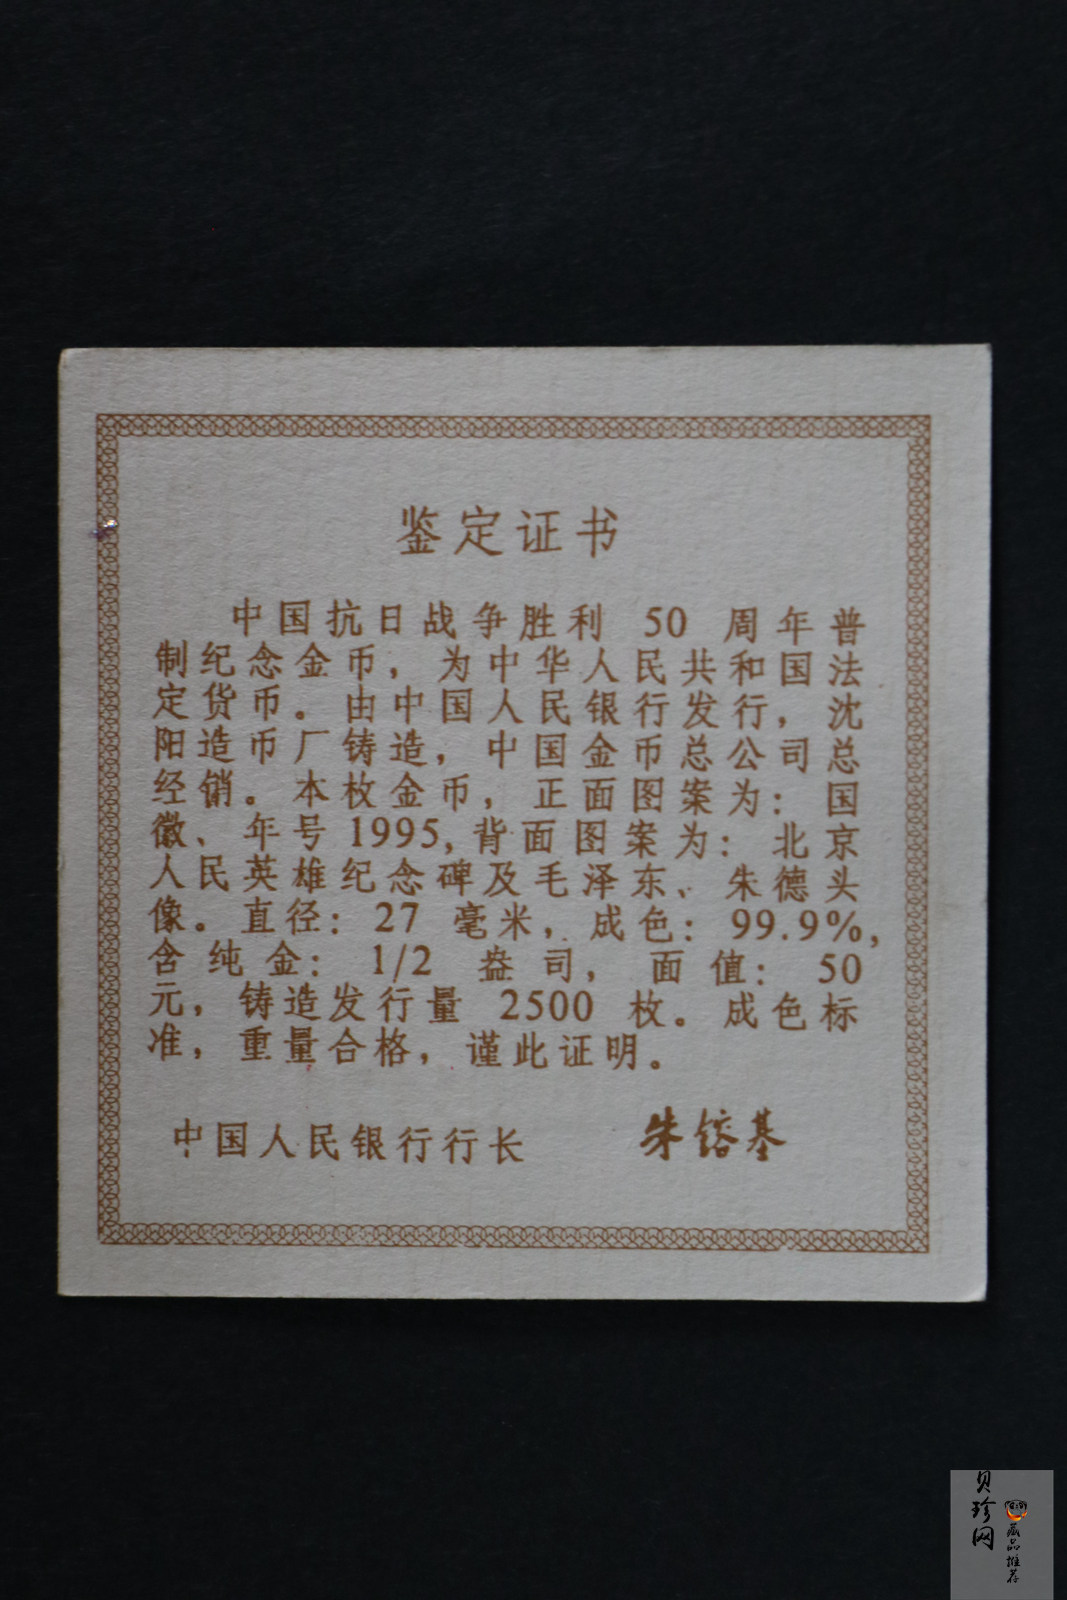 鉴定证书
中国抗日战争胜利 50 周年普
制纪念金币，为中华人民共和国法
定货币。由中国人民银行发行，沈
阳造币厂铸造，中国金币总公司总
经销。本枚金币，正面图案为：国
徽、年号 1995，背面图案为：北京
人民英雄纪念碑及毛泽东、朱德头
像。直径：27 毫米，成色：99.9%，
含纯金：1/2 盎司，面值：50
元，铸造发行量 2500 枚。成色标
准，重量合格，谨此证明。
中国人民银行行长 朱镕基
贝珍网
藏品推荐